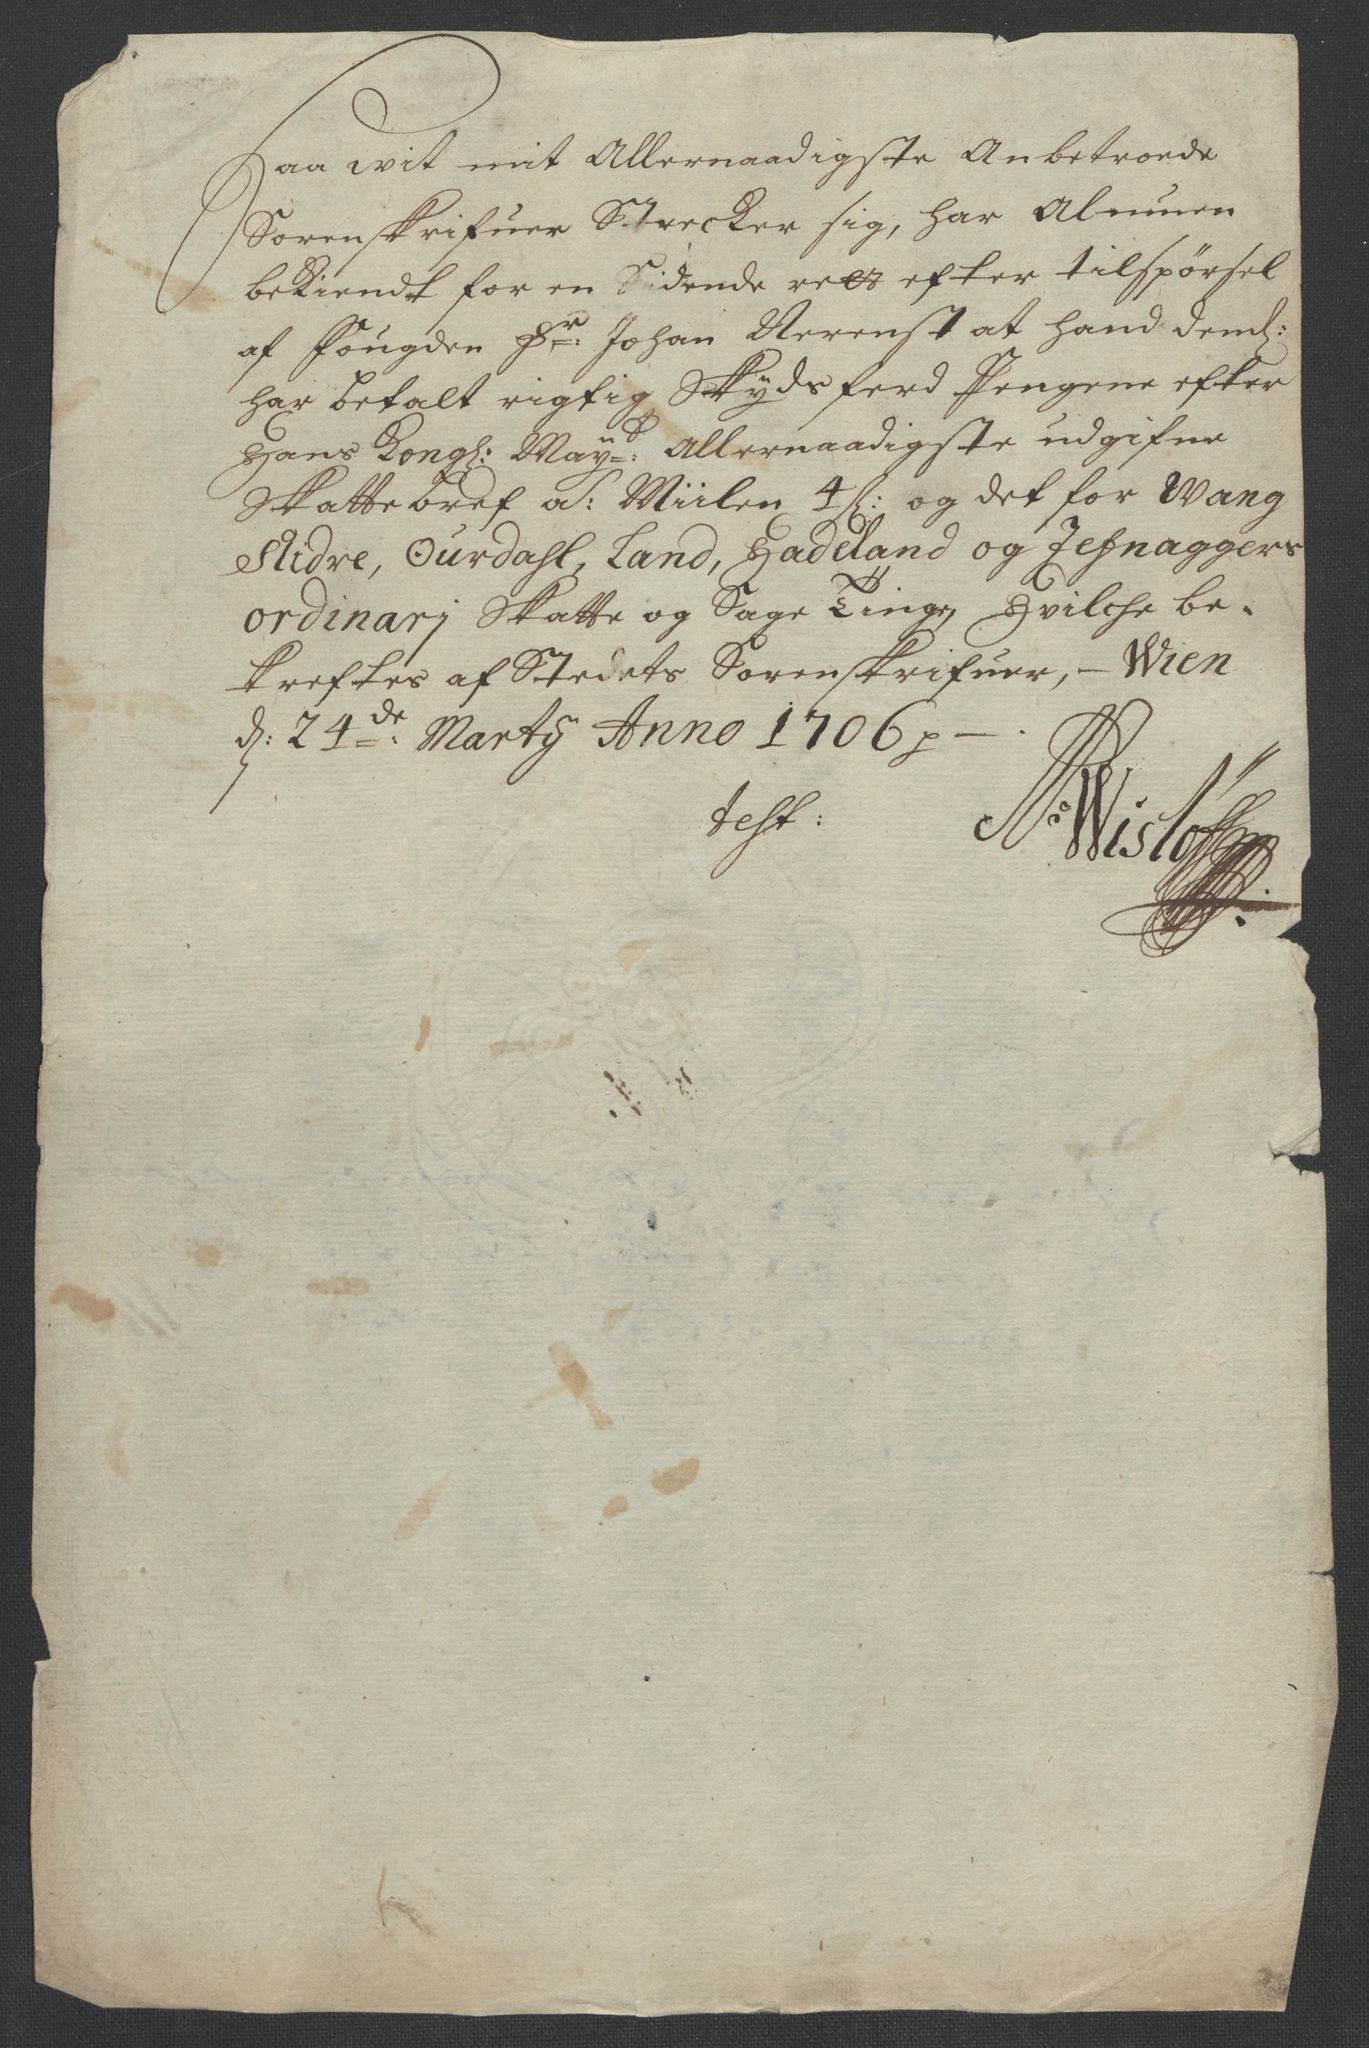 Saa wit mit Allernaadigste Anbetroede
Sorenskrifuer Strecker sig, har Almuen
bekiendt for en Sidende rett efter tilspörsel
af fougden Hr: Johan Nerenst at hand deml:
har betalt rigtig Skÿds ferd Pengene efter
Hans Kongl: Maÿt: Allernaadigste udgifne
Skattebref a: Miilen 4 s: og det for Wang
Slidre, Ourdahl, Land, Hadeland og Jefnaggers
ordinarj Skatte og Sage Tinge, Hvilche be-
kreftes af Stedets Sorenskrifuer, - Wien
d: 24de: Martÿ Anno 1706 p -
test: Ns Wislöff